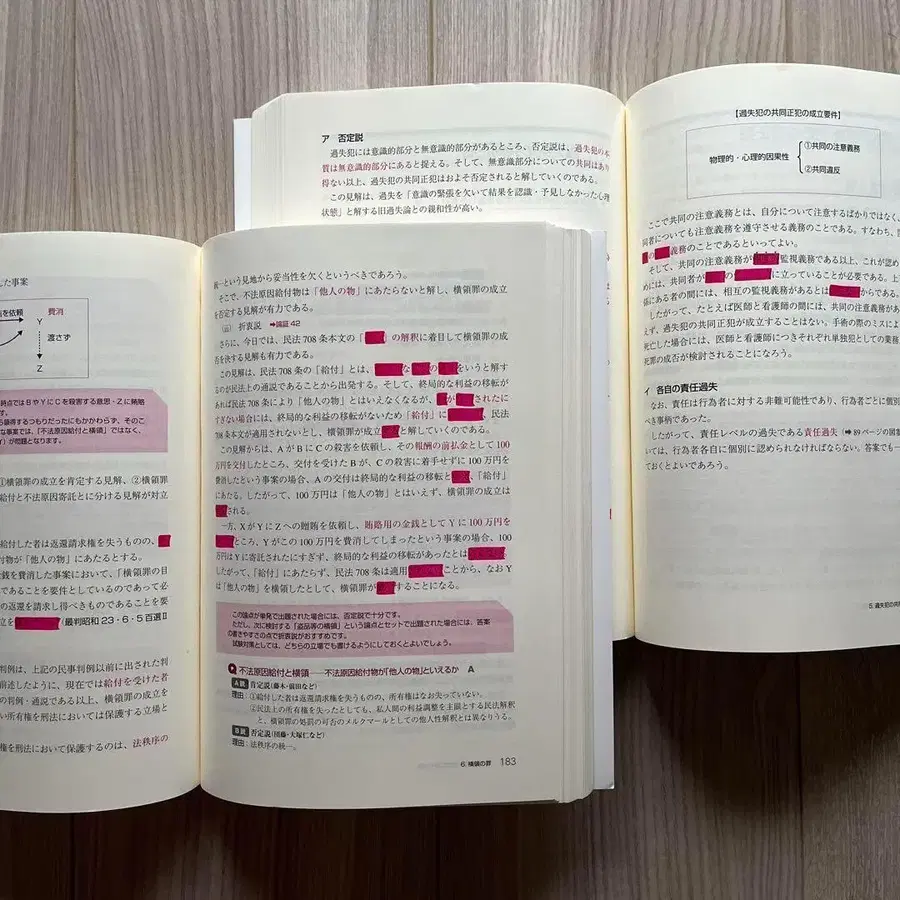 した事案
を依頼
費消
Y
渡さず
Z
時点ではBやYにCを殺害する意思・Zに賄賂
です。
領得するつもりだったにもかかわらず、そのこ
な事案では、「不法原因給付と横領」ではなく、
）が問題となります。
①横領罪の成立を肯定する見解、②横領
給付と不法原因寄託とに分ける見解が対立
給付した者は返還請求権を失うものの、
付物が「他人の物」にあたるとする。
金銭を費消した事案において、「横領罪の目
であることを要件としているのであって必
の返還を請求し得べきものであることを要
立を（最判昭和23・6・5百選Ⅱ
判例は、上記の民事判例以前に出された判
前述したように、現在では給付を受けた者
の判例・通説である以上、横領罪の成立を
い所有権を刑法においては保護する立場と
権を刑法において保護するのは、法秩序の
統一という見地から妥当性を欠くというべきであろう。
そこで、不法原因給付物は「他人の物」にあたらないと解し、横領罪の成立
を否定する見解が有力である。
(iii) 折衷説 ➡論証42
さらに、今日では、民法708条本文の「」の解釈に着目して横領罪の成
否を決する見解も有力である。
この見解は、民法708条の「給付」とは、なのをいうと解す
るのが民法上の通説であることから出発する。そして、終局的な利益の移転が
あれば民法708条により「他人の物」とはいえなくなるが、がされたに
すぎない場合には、終局的な利益の移転がないため「給付」に、民法
708条本文が適用されないとし、横領罪が成立と解していくのである。
この見解からは、AがBにCの殺害を依頼し、その報酬の前払金として100
万円を交付したところ、交付を受けたBが、Cの殺害に着手せずに100万円を
費消したという事案の場合、Aの交付は終局的な利益の移転と、「給付」
にあたる。したがって、100万円は「他人の物」とはいえず、横領罪の成立は
される。
一方、XがYにZへの贈賄を依頼し、賄賂用の金銭としてYに100万円を
ところ、Yがこの100万円を費消してしまったという事案の場合、100
万円はYに寄託されたにすぎず、終局的な利益の移転があったとは
したがって、「給付」にあたらず、民法708条は適用ことから、なおY
は「他人の物」を横領したとして、横領罪がすることになる。
この論点が単発で出題された場合には、否定説で十分です。
ただし、次に検討する「盗品等の横領」という論点とセットで出題された場合には、答案
の書きやすさの点で折衷説がおすすめです。
試験対策としては、どちらの立場でも書けるようにしておくとよいでしょう。
Q 不法原因給付と横領――不法原因給付物が「他人の物」といえるか A
A説 否定説（藤木・前田など）
理由：①給付した者は返還請求権を失うものの、所有権はなお失っていない。
②民法上の所有権を失ったとしても、私人間の利益調整を主眼とする民法解釈
と、横領罪の処罰の可否のメルクマールとしての他人性解釈とは異なりうる。
B説 否定説（団藤・大塚仁など）
理由：法秩序の統一。
6. 横領の罪 183
ア 否定説
過失犯には意識的部分と無意識的部分があるところ、否定説は、過失犯の本
質は無意識的部分にあると捉える。そして、無意識部分についての共同はあり
得ない以上、過失犯の共同正犯はおよそ否定されると解していくのである。
この見解は、過失を「意識の緊張を欠いて結果を認識・予見しなかった心理
状態」と解する旧過失論との親和性が高い。
【過失犯の共同正犯の成立要件】
物理的・心理的因果性
①共同の注意義務
②共同違反
ここで共同の注意義務とは、自分について注意するばかりではなく、
同者についても注意義務を遵守させる義務のことである。すなわち、
の義務のことであるといってよい。
そして、共同の注意義務が監視義務である以上、これが認め
めには、共同者がのに立っていることが必要である。上
係にある者の間には、相互の監視義務があるとはからである。
したがって、たとえば医師と看護師の間には、共同の注意義務があ
えず、過失犯の共同正犯が成立することはない。手術の際のミスによ
死亡した場合には、医師と看護師につきそれぞれ単独犯としての業務
死罪の成否が検討されることになろう。
イ 各自の責任過失
なお、責任は行為者に対する非難可能性であり、行為者ごとに個別
べき事柄であった。
したがって、責任レベルの過失である責任過失（➡89ページの図
いては、行為者各自に個別に認められなければならない。答案でも一
ておくとよいであろう。
5. 過失犯の共同